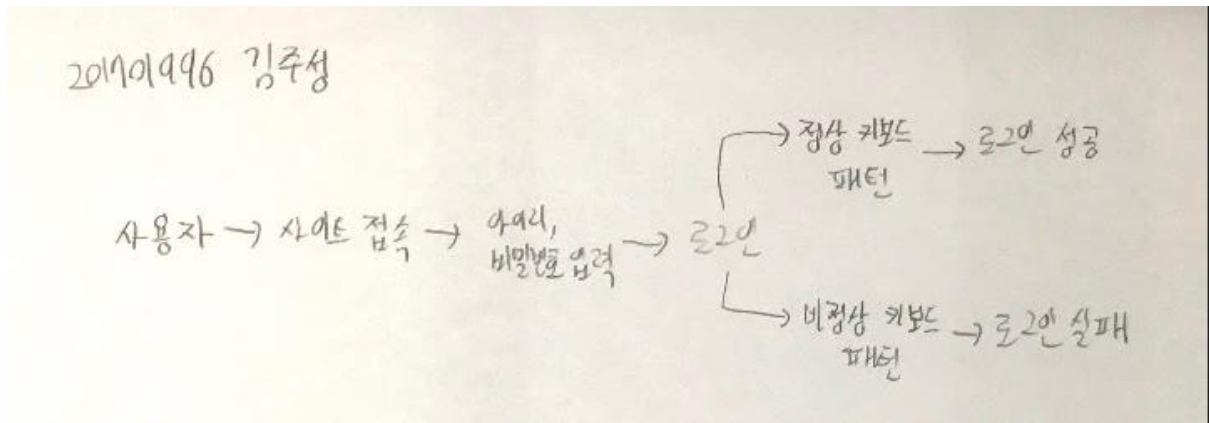 201701996 김주성
사용자 → 사이트 접속 → 아이디,
비밀번호 입력 → 로그인
→ 정상 키보드
패턴
→ 로그인 성공
→ 비정상 키보드
패턴
→ 로그인 실패